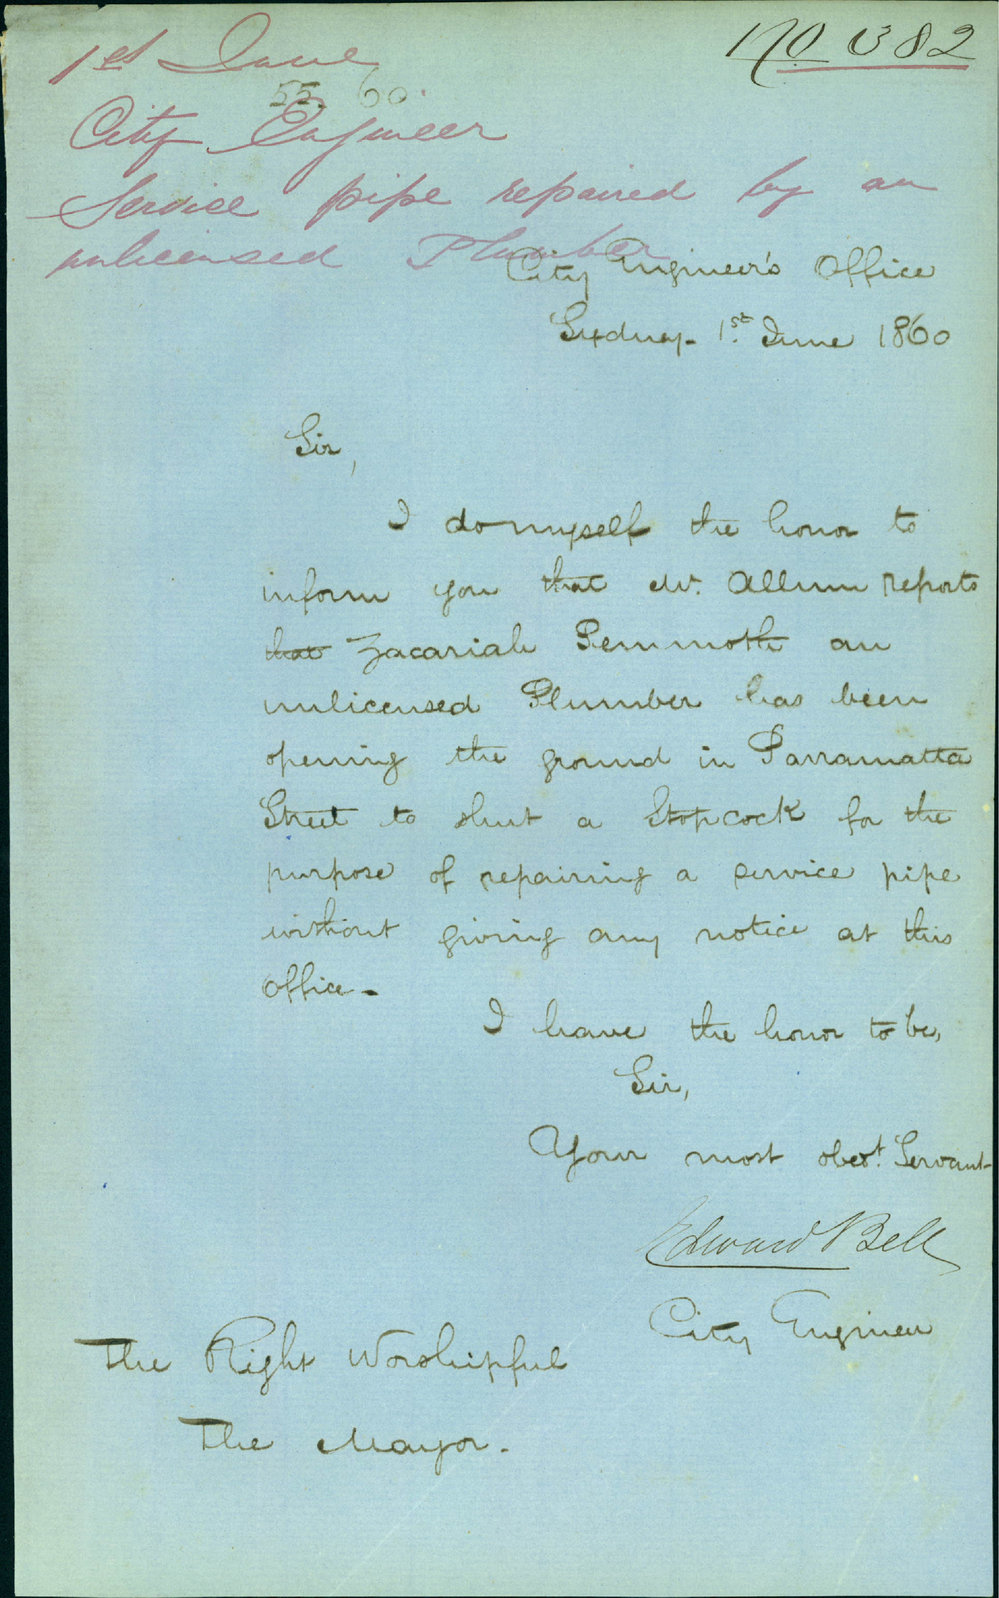 No 382
1st June
55. 60.
City Engineer
Service pipe repaired by an
unlicensed Plumber
City Engineer's Office
Sydney. 1st. June 1860
Sir,
I do myself the honor to
inform you that Mr. Allum reports
that Zacariah Pemmoth an
unlicensed Plumber has been
opening the ground in Parramatta
Street to shut a Stopcock for the
purpose of repairing a service pipe
without giving any notice at this
Office-
I have the honor to be,
Sir,
Your most obedt. Servant
Edward Bell
City Engineer
The Right Worshipful
The Mayor.